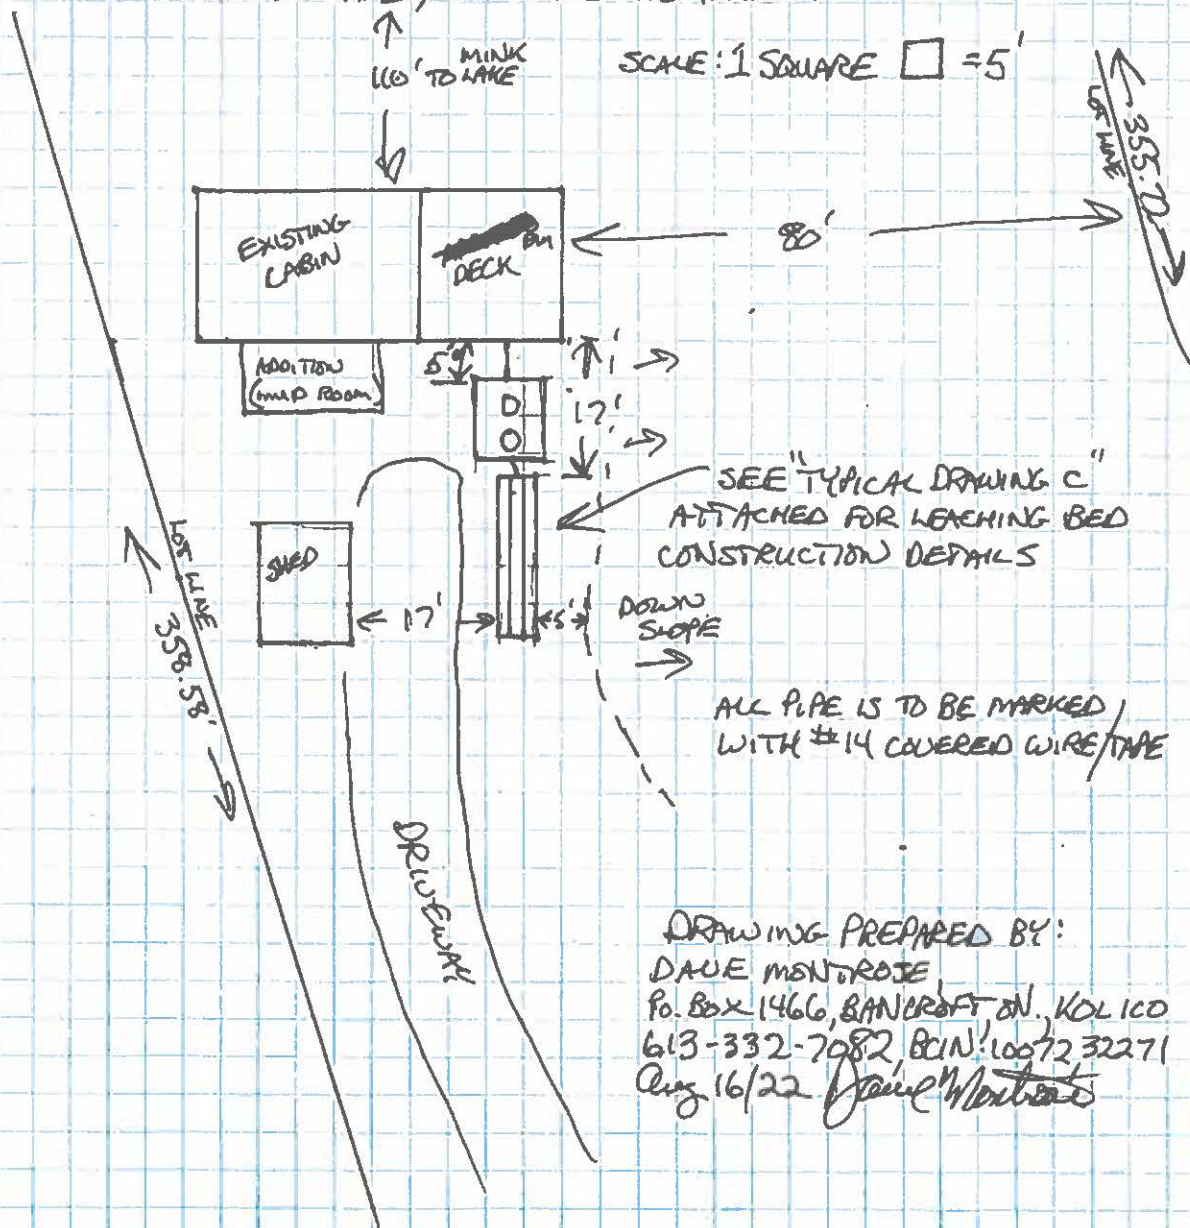 110' TO MINK LAKE
SCALE: 1 SQUARE □ = 5'
LOT LINE
355.72
EXISTING
CABIN
DM
DECK
80'
ADDITION
(MUD ROOM)
5'
17'
SEE "TYPICAL DRAWING C"
ATTACHED FOR LEACHING BED
CONSTRUCTION DETAILS
SHED
LOT LINE
358.58'
17'
5'
DOWN
SLOPE
ALL PIPE IS TO BE MARKED
WITH #14 COVERED WIRE/TAPE
DRIVEWAY
DRAWING PREPARED BY:
DAVE MONTROSE
P.O. BOX 1466, BANCROFT ON., K0L 1C0
613-332-7082, BCIN: 1007232271
Aug 16/22 Dave Montrose